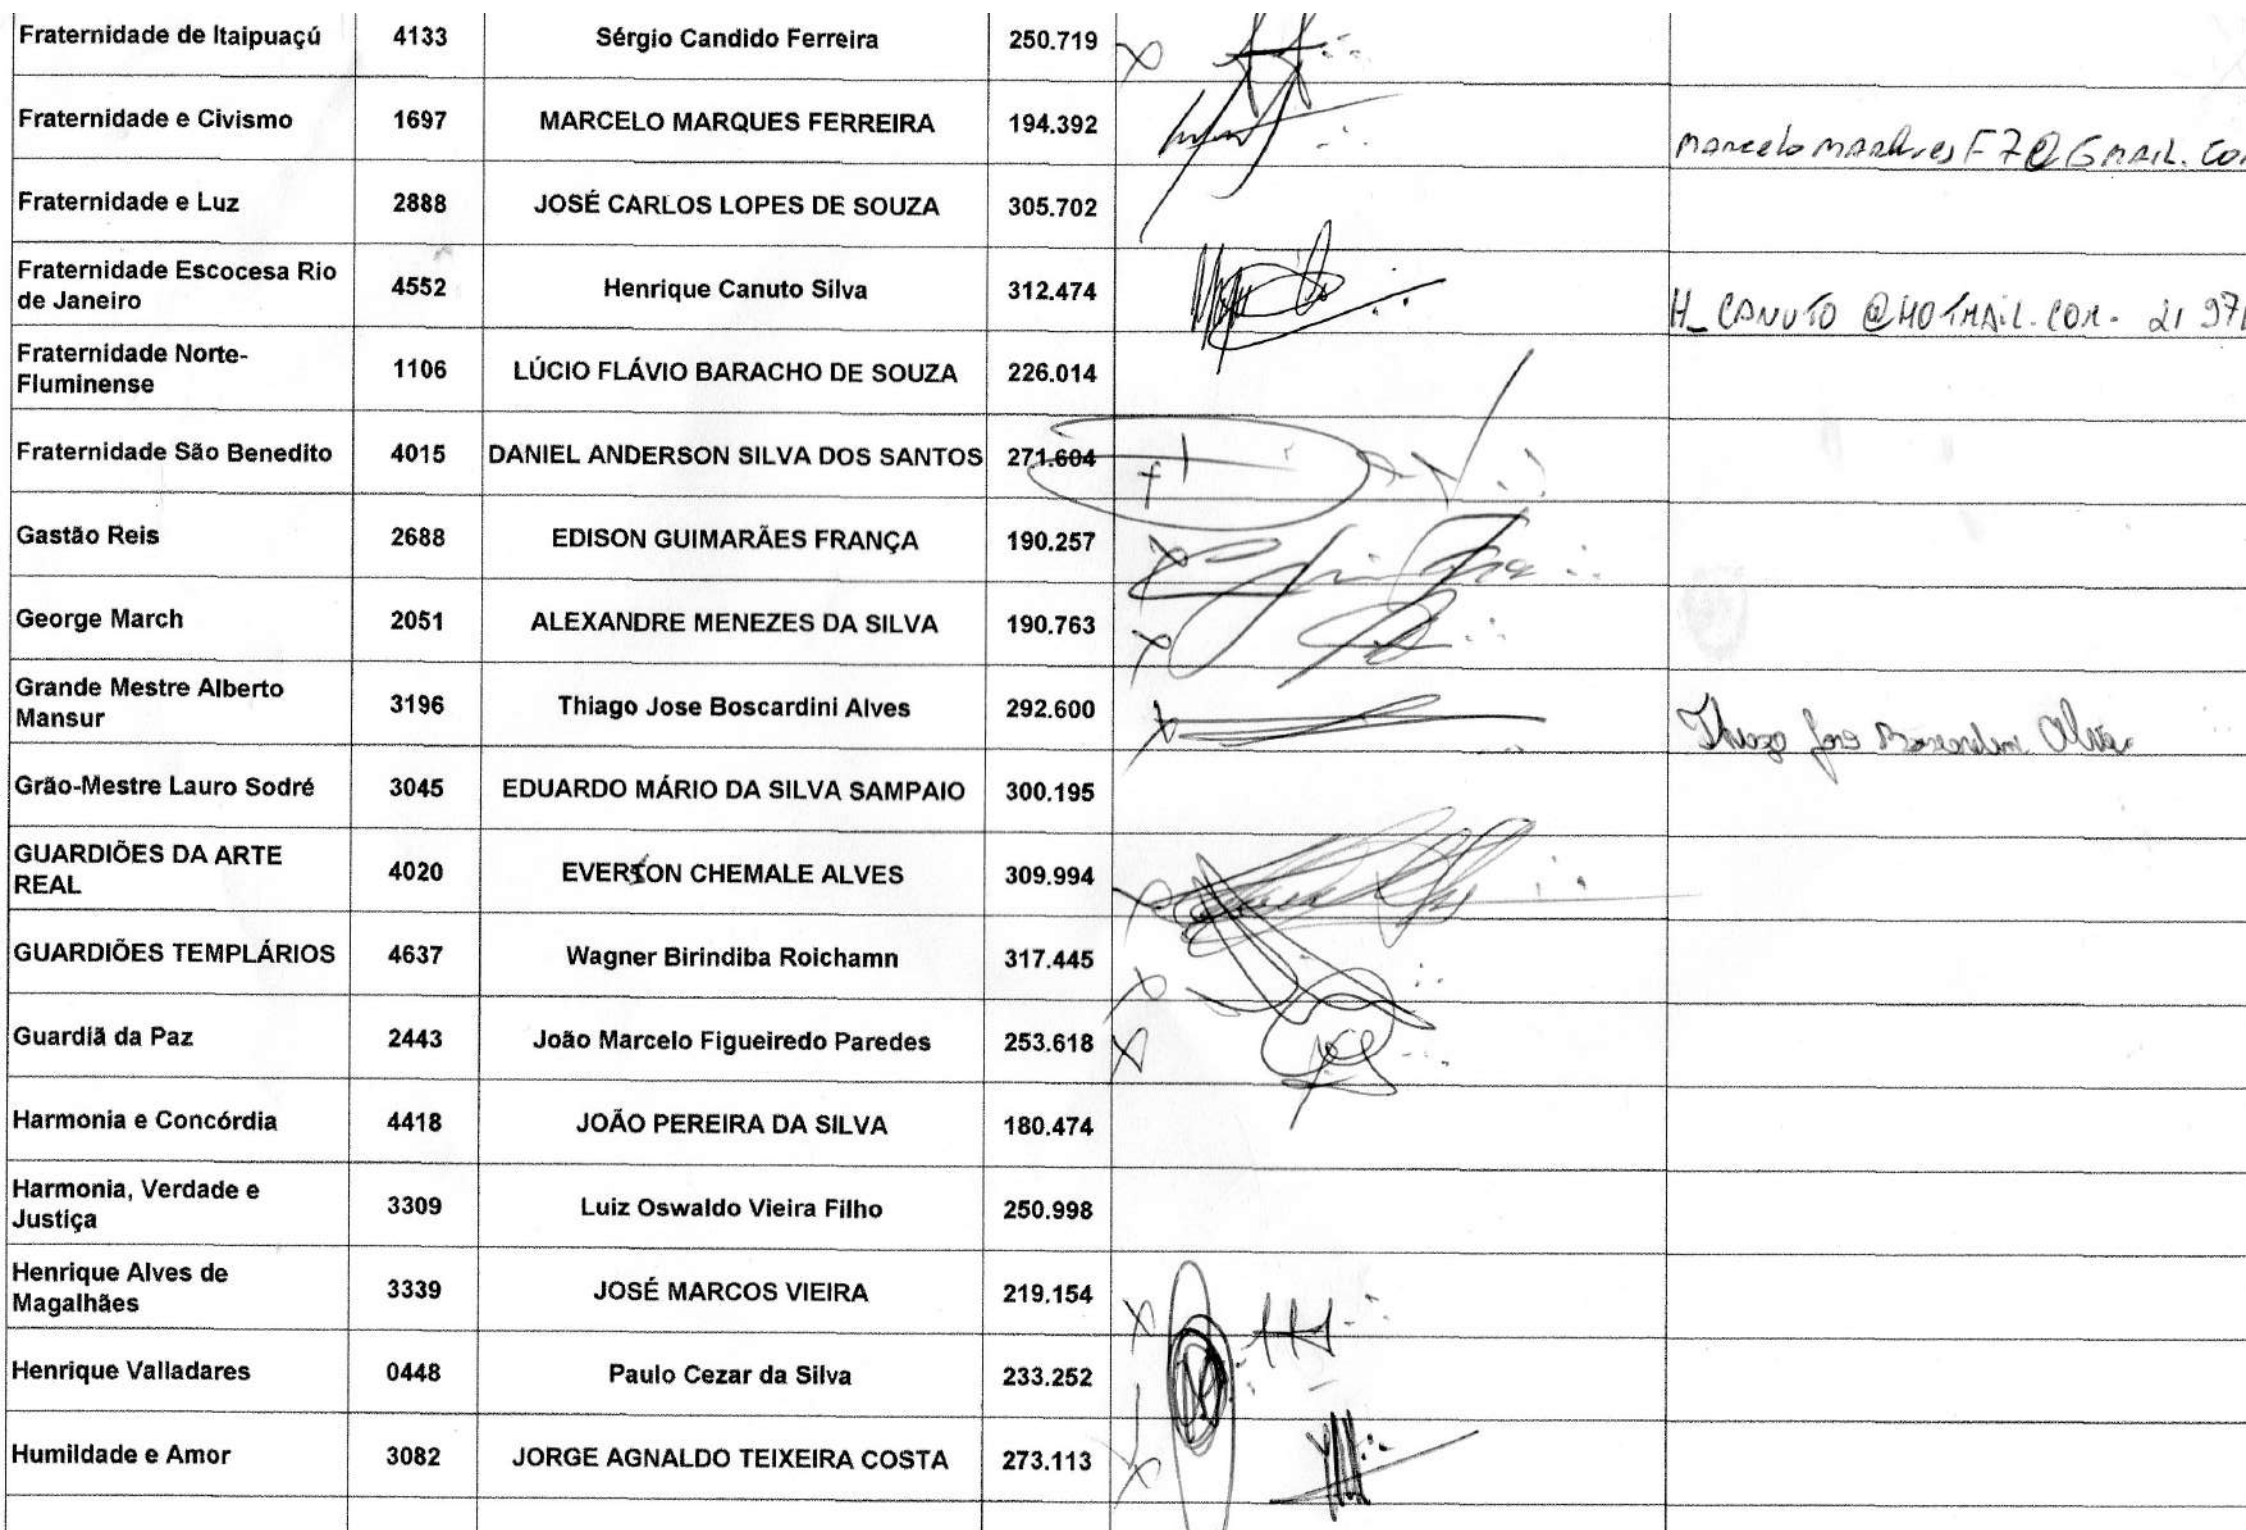 Fraternidade de Itaipuaçú 4133 Sérgio Candido Ferreira 250.719
Fraternidade e Civismo 1697 MARCELO MARQUES FERREIRA 194.392
Fraternidade e Luz 2888 JOSÉ CARLOS LOPES DE SOUZA 305.702
Fraternidade Escocesa Rio
de Janeiro 4552 Henrique Canuto Silva 312.474 H_CANUTO @HOTMAIL.COM - 21
Fraternidade Norte-
Fluminense 1106 LÚCIO FLÁVIO BARACHO DE SOUZA 226.014
Fraternidade São Benedito 4015 DANIEL ANDERSON SILVA DOS SANTOS 271.604
Gastão Reis 2688 EDISON GUIMARÃES FRANÇA 190.257
George March 2051 ALEXANDRE MENEZES DA SILVA 190.763
Grande Mestre Alberto
Mansur 3196 Thiago Jose Boscardini Alves 292.600 Thiago José Boscardini Alves
Grão-Mestre Lauro Sodré 3045 EDUARDO MÁRIO DA SILVA SAMPAIO 300.195
GUARDIÕES DA ARTE
REAL 4020 EVERSON CHEMALE ALVES 309.994
GUARDIÕES TEMPLÁRIOS 4637 Wagner Birindiba Roichamn 317.445
Guardiã da Paz 2443 João Marcelo Figueiredo Paredes 253.618
Harmonia e Concórdia 4418 JOÃO PEREIRA DA SILVA 180.474
Harmonia, Verdade e
Justiça 3309 Luiz Oswaldo Vieira Filho 250.998
Henrique Alves de
Magalhães 3339 JOSÉ MARCOS VIEIRA 219.154
Henrique Valladares 0448 Paulo Cezar da Silva 233.252
Humildade e Amor 3082 JORGE AGNALDO TEIXEIRA COSTA 273.113